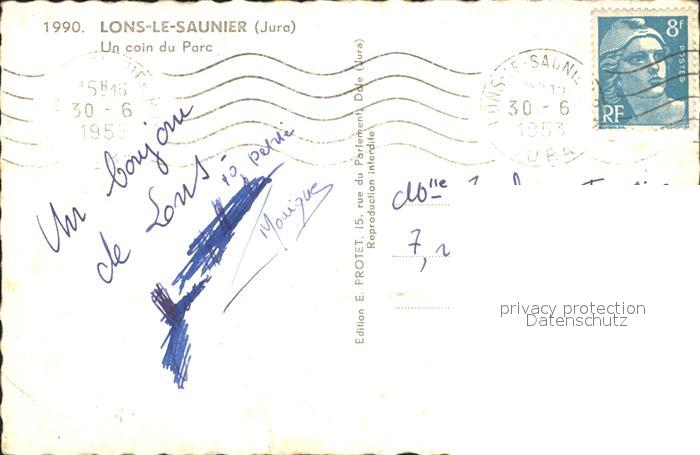 1990. LONS-LE-SAUNIER (Jura)
Un coin du Parc
15H15
30 - 6
1953
LONS-LE-SAUNIER
30 - 6
1953
JURA
8F
POSTES
RF
Un bonjour
de Lons
Monique
Edition E. PROTET, 15, rue du Parlement, Dole (Jura)
Reproduction interdite
Mlle
7,
privacy protection
Datenschutz